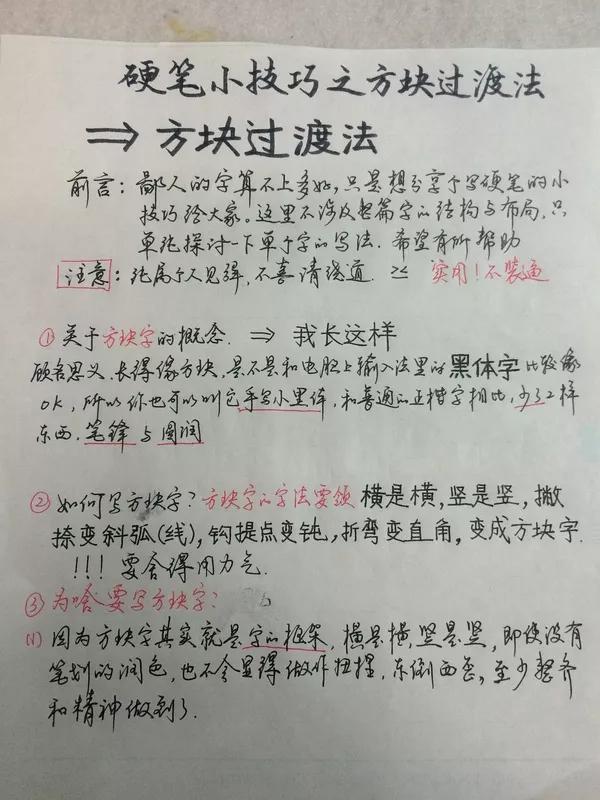 硬笔小技巧之方块过渡法
⇒ 方块过渡法
前言：鄙人的字算不上多好，只是想分享个写硬笔的小
技巧给大家。这里不涉及整篇字的结构与布局，只
单纯探讨一下单个字的写法．希望有所帮助
注意：纯属个人见解，不喜请绕道． ≥≤ 实用！不装逼
① 关于方块字的概念． ⇒ 我长这样
顾名思义．长得像方块，是不是和电脑上输入法里的黑体字比较像
OK，所以你也可以叫它手写小黑体，和普通的正楷字相比，少了2样
东西．笔锋与圆润
② 如何写方块字？方块字的字法要领 横是横，竖是竖，撇
捺变斜弧(线)，钩提点变钝，折弯变直角，变成方块字．
!!! 要舍得用力气．
③ 为啥要写方块字？
(1) 因为方块字其实就是字的框架．横是横，竖是竖，即使没有
笔划的润色，也不会显得做作扭捏，东倒西歪，至少整齐
和精神做到了．